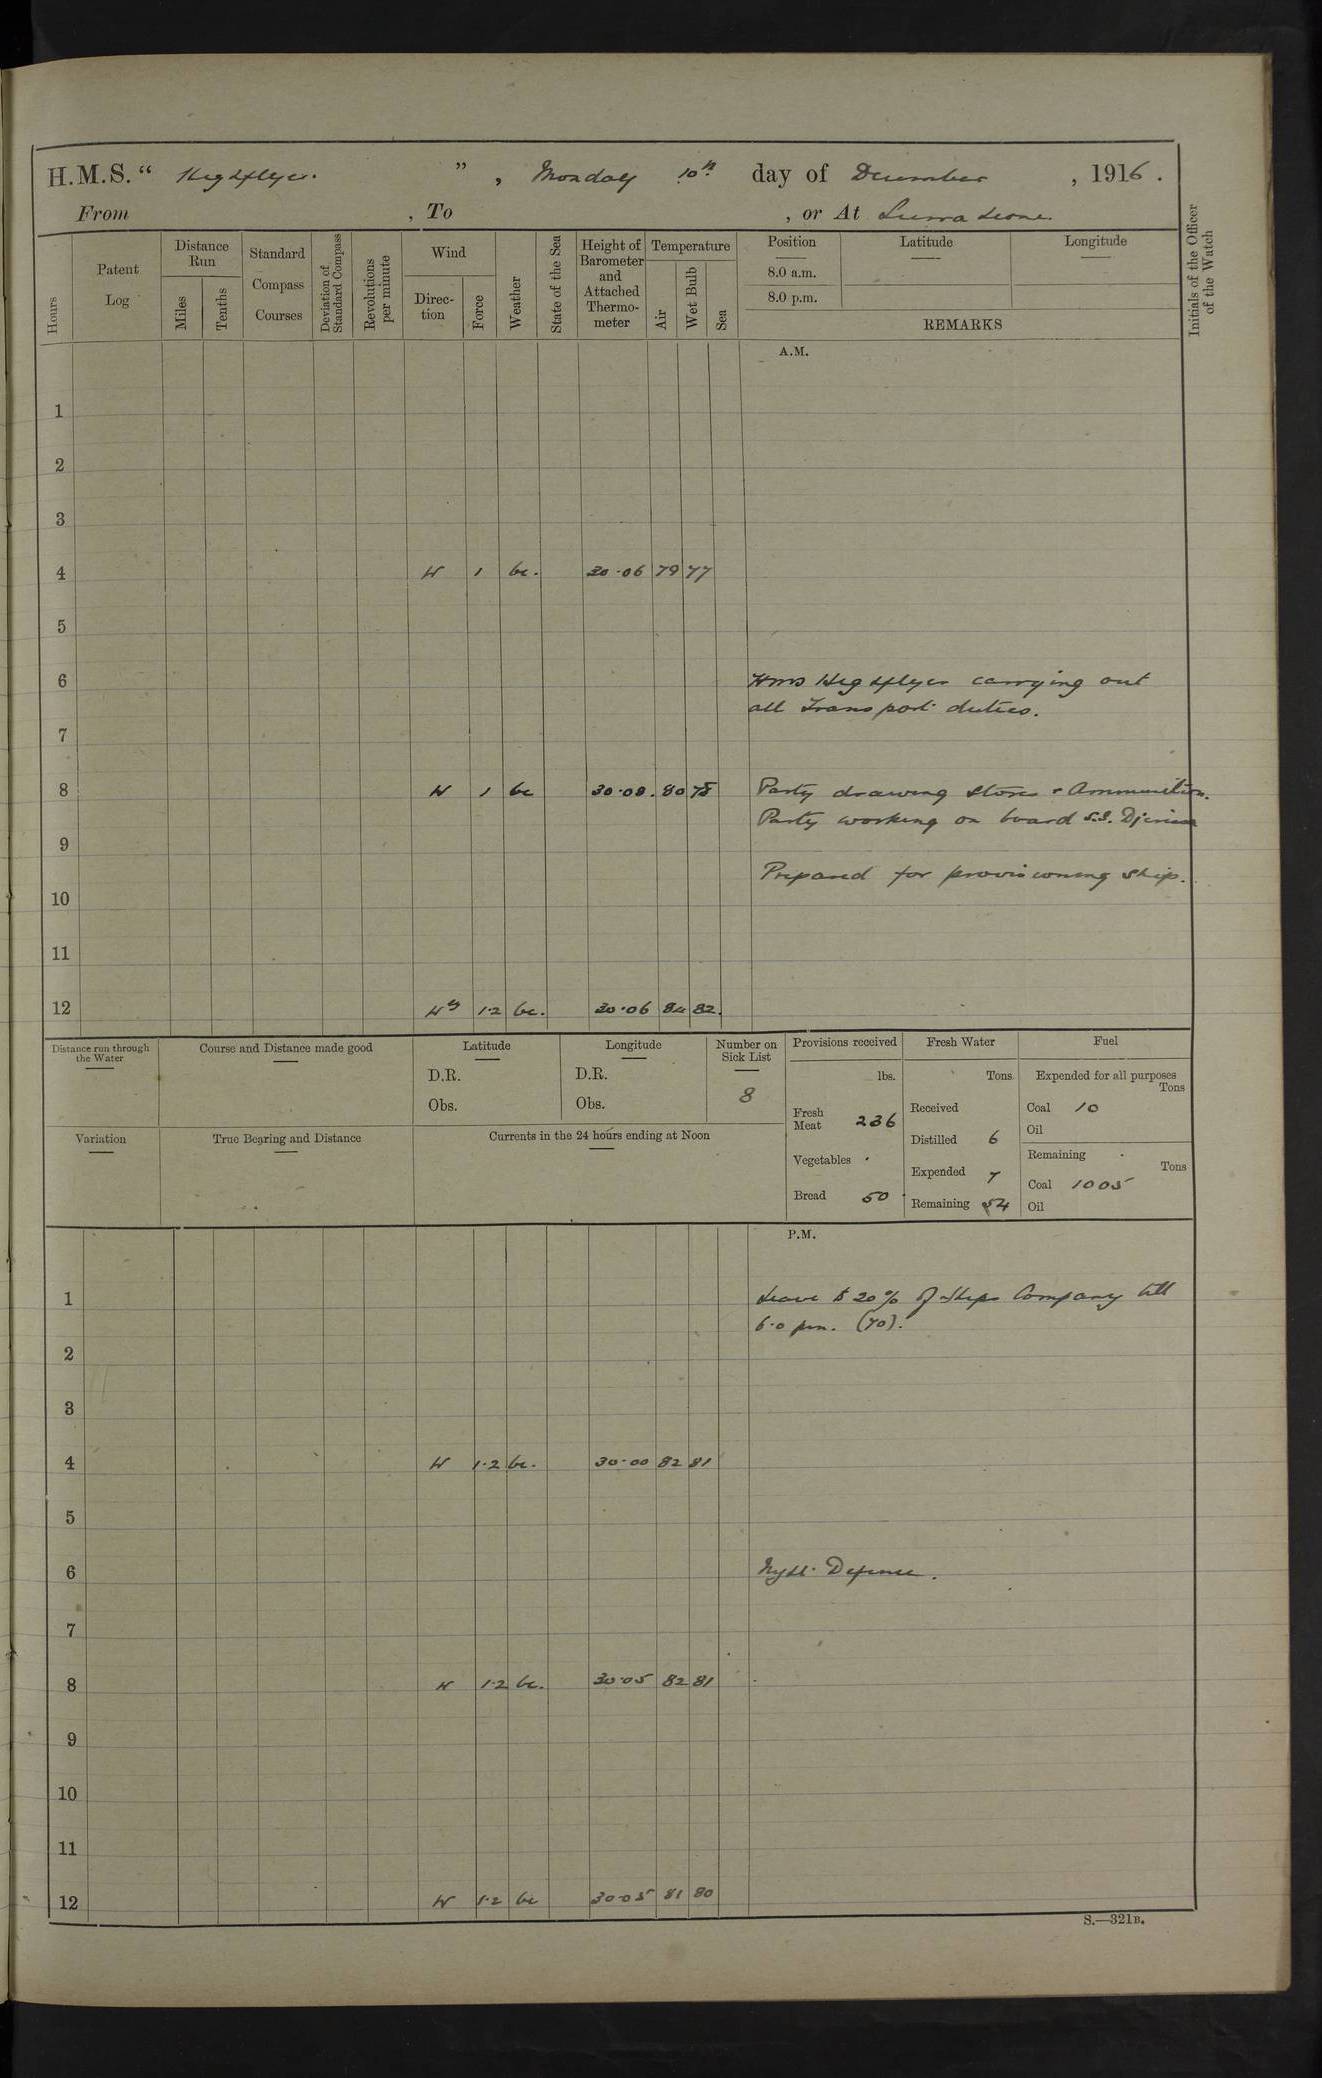 H.M.S. “ Highflyer. ” , Monday 10th. day of December , 1916 .
From , To , or At Sierra Leone.
Hours
Patent Log
Distance Run
Miles
Tenths
Standard Compass Courses
Deviation of Standard Compass
Revolutions per minute
Wind
Direc- tion
Force
Weather
State of the Sea
Height of Barometer and Attached Thermo- meter
Temperature
Air
Wet Bulb
Sea
Position Latitude Longitude
8.0 a.m.
8.0 p.m.
REMARKS
Initials of the Officer of the Watch
A.M.
1
2
3
4 W 1 bc. 30.06 79 77
5
6 HMS Highflyer carrying out
all Transport duties.
7
8 W 1 bc 30.08. 80 78 Party drawing stores + Ammunition.
Party working on board S.S.
9
Prepared for provisioning ship.
10
11
12 Wy 1.2 bc. 30.06 84 82.
Distance run through the Water
Course and Distance made good
Latitude
D.R.
Obs.
Longitude
D.R.
Obs.
Number on Sick List
8
Variation
True Bearing and Distance
Currents in the 24 hours ending at Noon
Provisions received
lbs.
Fresh Meat 236
Vegetables
Bread 50
Fresh Water
Tons
Received
Distilled 6
Expended 7
Remaining 54
Fuel
Expended for all purposes
Tons
Coal 10
Oil
Remaining
Tons
Coal 1005
Oil
P.M.
1 Leave to 20% of Ships Company till
6.0 pm. (70).
2
3
4 W 1.2 bc. 30.00 82 81
5
6 Night Defence.
7
8 W 1.2 bc. 30.05 82 81
9
10
11
12 W 1.2 bc 30.05 81 80
S.—321B.